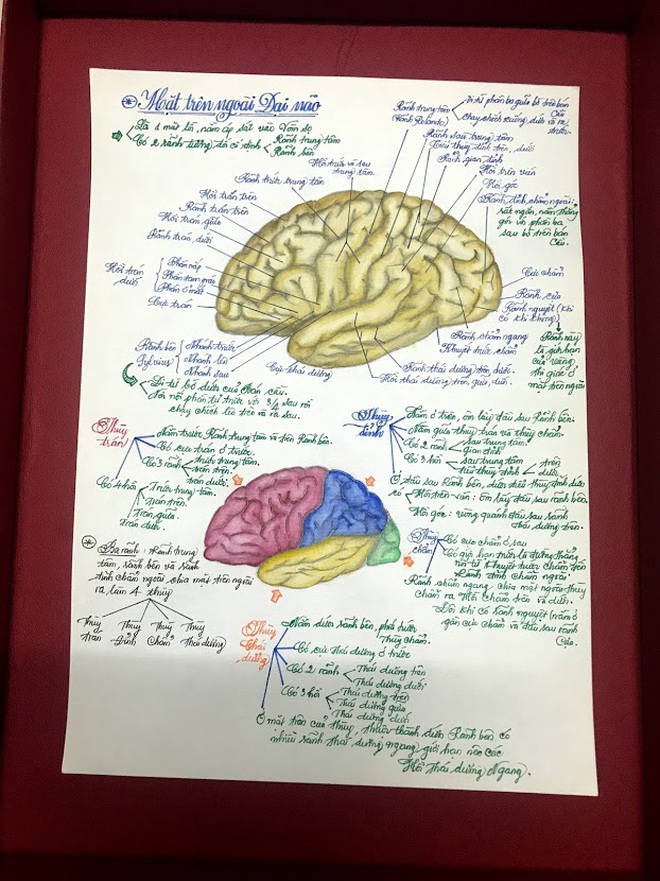 Mặt trên ngoài Đại não
Là 1 mặt lồi, nằm áp sát vào Vòm sọ
Có 2 rãnh tương đối cố định
Rãnh trung tâm
Rãnh bên
Rãnh trung tâm
(Rãnh Rolando)
Đi từ phần ba giữa bờ trên bán Cầu
chạy chếch xuống dưới và ra trước.
Rãnh sau trung tâm
Tiểu thùy đỉnh trên, dưới
Rãnh gian đỉnh
Hồi trên viền
Hồi góc
Rãnh đỉnh chẩm ngoài:
rất ngắn, nằm thẳng
góc với phần ba
sau bờ trên bán
Cầu.
Hồi trước và sau
trung tâm.
Rãnh trước trung tâm
Hồi trán trên
Rãnh trán trên
Hồi trán giữa
Rãnh trán dưới
Hồi trán
dưới
Phần nắp
Phần tam giác
Phần ổ mắt
Cực trán
Cực chẩm
Rãnh cựa
Rãnh nguyệt (khi
có khi không)
Rãnh này
là giới hạn
của vùng
thị giác ở
mặt trên ngoài
Rãnh chẩm ngang
Khuyết trước chẩm
Rãnh thái dương trên, dưới.
Hồi thái dương trên, giữa, dưới.
Rãnh bên
Sylvius
Nhánh trước
Nhánh lên
Nhánh sau
Cực thái dương
Đi từ bờ dưới của bán cầu.
Tới nối phần tư trước với 3/4 sau rồi
chạy chếch lên trên và ra sau.
Thùy
trán
Nằm trước Rãnh trung tâm và trên Rãnh bên.
Có cực trán ở trước.
Có 3 rãnh
trước trung tâm.
trán trên.
trán dưới.
Có 4 hồi
Trước trung tâm.
Trán trên.
Trán giữa.
Trán dưới.
Thùy
đỉnh
Nằm ở trên, ôm lấy đầu sau Rãnh bên.
Nằm giữa thùy trán và thùy chẩm.
Có 2 rãnh
sau trung tâm.
gian đỉnh
Có 3 hồi
sau trung tâm
tiểu thùy đỉnh
trên
dưới
Ở đầu sau Rãnh bên, dưới tiểu thùy đỉnh dưới
có
Hồi trên viền: Ôm lấy đầu sau rãnh bên.
Hồi góc: vòng quanh đầu sau rãnh
thái dương trên.
Ba rãnh: Rãnh trung
tâm, rãnh bên và rãnh
đỉnh chẩm ngoài chia mặt trên ngoài
ra làm 4 thùy
Thùy
trán
Thùy
đỉnh
Thùy
chẩm
Thùy
thái dương
Thùy
chẩm
Có cực chẩm ở sau
Có giới hạn trước là đường thẳng
nối từ Khuyết trước chẩm đến
Rãnh đỉnh chẩm ngoài.
Rãnh chẩm ngang chia mặt ngoài thùy
chẩm ra Hồi chẩm trên và dưới.
Đôi khi có Rãnh nguyệt (nằm ở
gần cực chẩm và đầu sau rãnh
Cựa.
Thùy
Thái
dương
Nằm dưới rãnh bên, phía trước
Thùy chẩm.
Có cực Thái dương ở trước
Có 2 rãnh
Thái dương trên
Thái dương dưới
Có 3 hồi
Thái dương trên
Thái dương giữa
Thái dương dưới
Ở mặt trên của thùy, thuộc thành dưới Rãnh bên có
nhiều rãnh thái dương ngang giới hạn nên các
Hồi Thái dương Ngang.